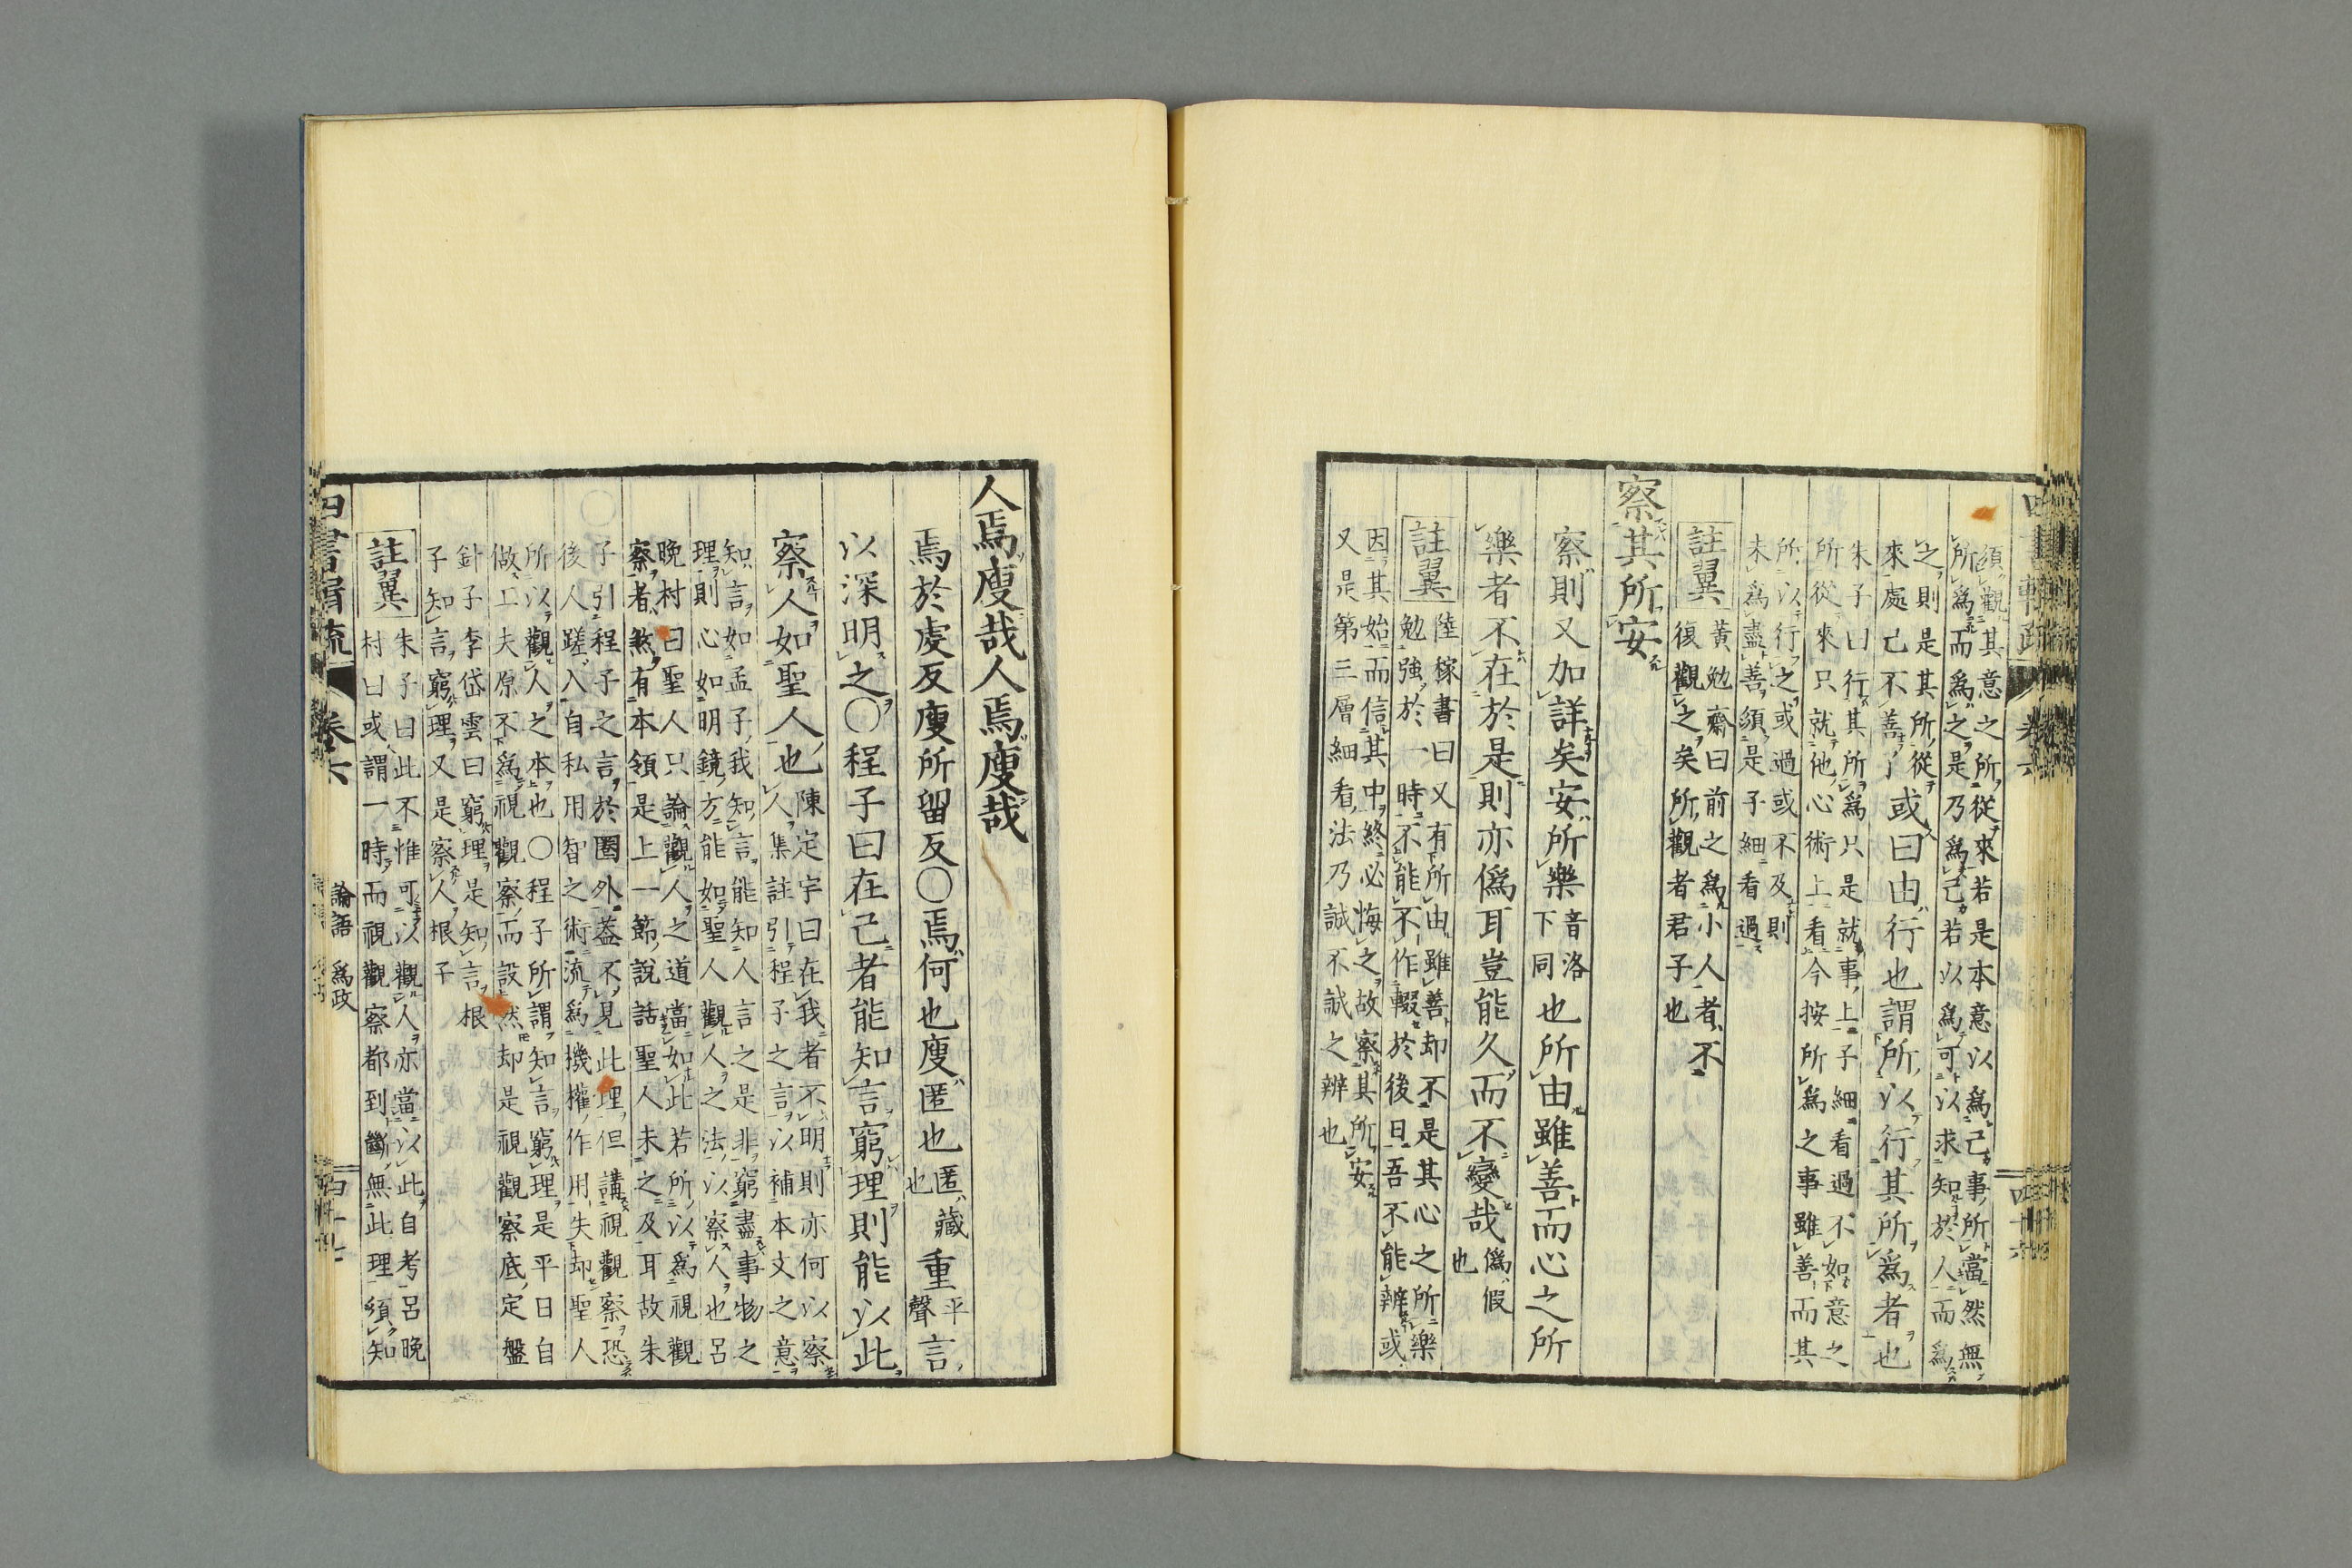 須觀其意之所從來若是本意以爲己事所當然無
所爲而爲之是乃爲己若以爲可以求知於人而爲
之則是其所從
來處己不善了
或曰由行也謂所以行其所爲者也
朱子曰行其所爲只是就事上子細看過不如意之
所從來只就他心術上看今按所爲之事雖善而其
所以行之或過或不及則
未爲盡善須是子細看過
註翼
黃勉齋曰前之爲小人者不
復觀之矣所觀者君子也
察其所安
察則又加詳矣安所樂
音洛
下同
也所由雖善而心之所
樂者不在於是則亦僞耳豈能久而不變哉
僞假
也
註翼
陸稼書曰又有所由雖善却不是其心之所樂
勉強於一時不能不作輟於後日吾不能辨或
因其始而信其中終必悔之故察其所安
又是第三層細看法乃誠不誠之辨也
人焉廋哉人焉廋哉
焉於虔反廋所留反〇焉何也廋匿也
匿藏
也
重
平
聲
言
以深明之〇程子曰在己者能知言窮理則能以此
察人如聖人也
陳定宇曰在我者不明則亦何以察
人集註引程子之言以補本文之意
知言如孟子我知言能知人言之是非窮理盡事物之
理則心如明鏡方能如聖人觀人之法以察人也呂
晚村曰聖人只論觀人之道當如此若所以爲視觀
察者煞有本領是上一節說話聖人未之及耳故朱
子引程子之言於圈外蓋不見此理但講視觀察恐
後人蹉入自私用智之術流爲機權作用失却聖人
所以觀人之本也〇程子所謂知言窮理是平日自
做工夫原不爲視觀察而設然却是視觀察底定盤
針子李岱雲曰窮理是知言根
子知言窮理又是察人根子
註翼
朱子曰此不惟可以觀人亦當以此自考呂晚
村曰或謂一時而視觀察都到斷無此理須知
四書
卷六
論語
爲政